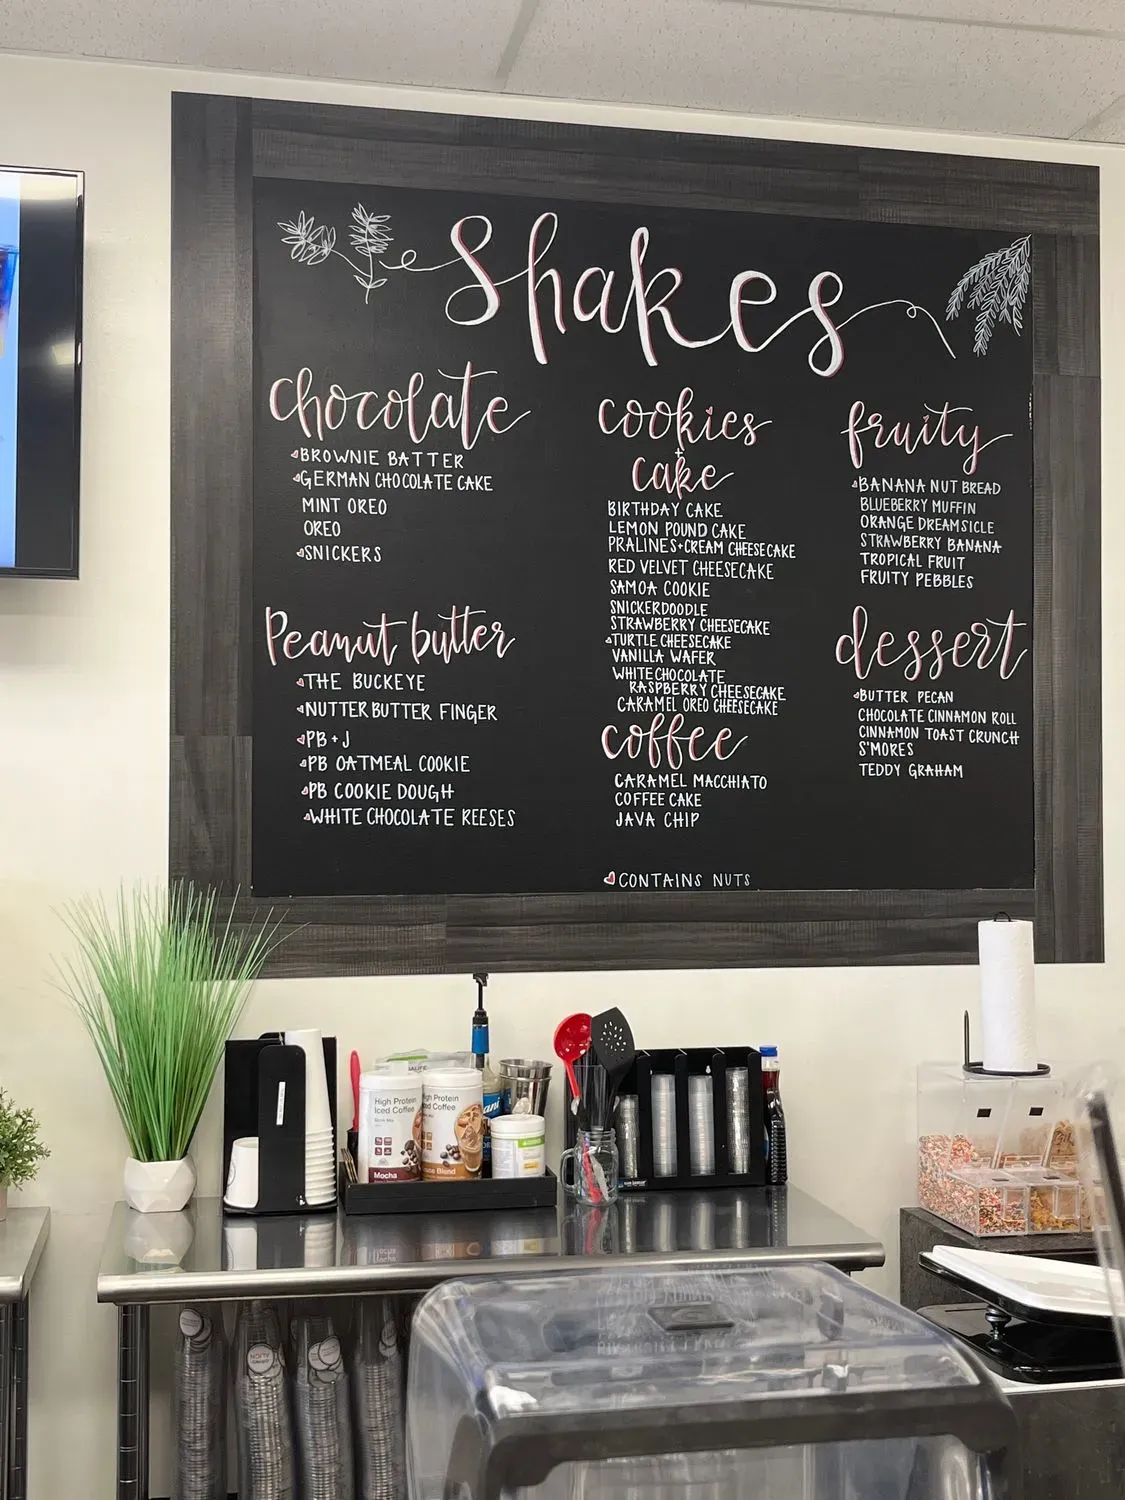 Shakes
chocolate
BROWNIE BATTER
GERMAN CHOCOLATE CAKE
MINT OREO
OREO
SNICKERS
Peanut butter
THE BUCKEYE
NUTTER BUTTER FINGER
PB + J
PB OATMEAL COOKIE
PB COOKIE DOUGH
WHITE CHOCOLATE REESES
cookies
+
cake
BIRTHDAY CAKE
LEMON POUND CAKE
PRALINES+CREAM CHEESECAKE
RED VELVET CHEESECAKE
SAMOA COOKIE
SNICKERDOODLE
STRAWBERRY CHEESECAKE
TURTLE CHEESECAKE
VANILLA WAFER
WHITE CHOCOLATE
RASPBERRY CHEESECAKE
CARAMEL OREO CHEESECAKE
coffee
CARAMEL MACCHIATO
COFFEE CAKE
JAVA CHIP
fruity
BANANA NUT BREAD
BLUEBERRY MUFFIN
ORANGE DREAMSICLE
STRAWBERRY BANANA
TROPICAL FRUIT
FRUITY PEBBLES
dessert
BUTTER PECAN
CHOCOLATE CINNAMON ROLL
CINNAMON TOAST CRUNCH
S'MORES
TEDDY GRAHAM
CONTAINS NUTS
High Protein
Iced Coffee
Mocha
High Protein
Iced Coffee
Blend